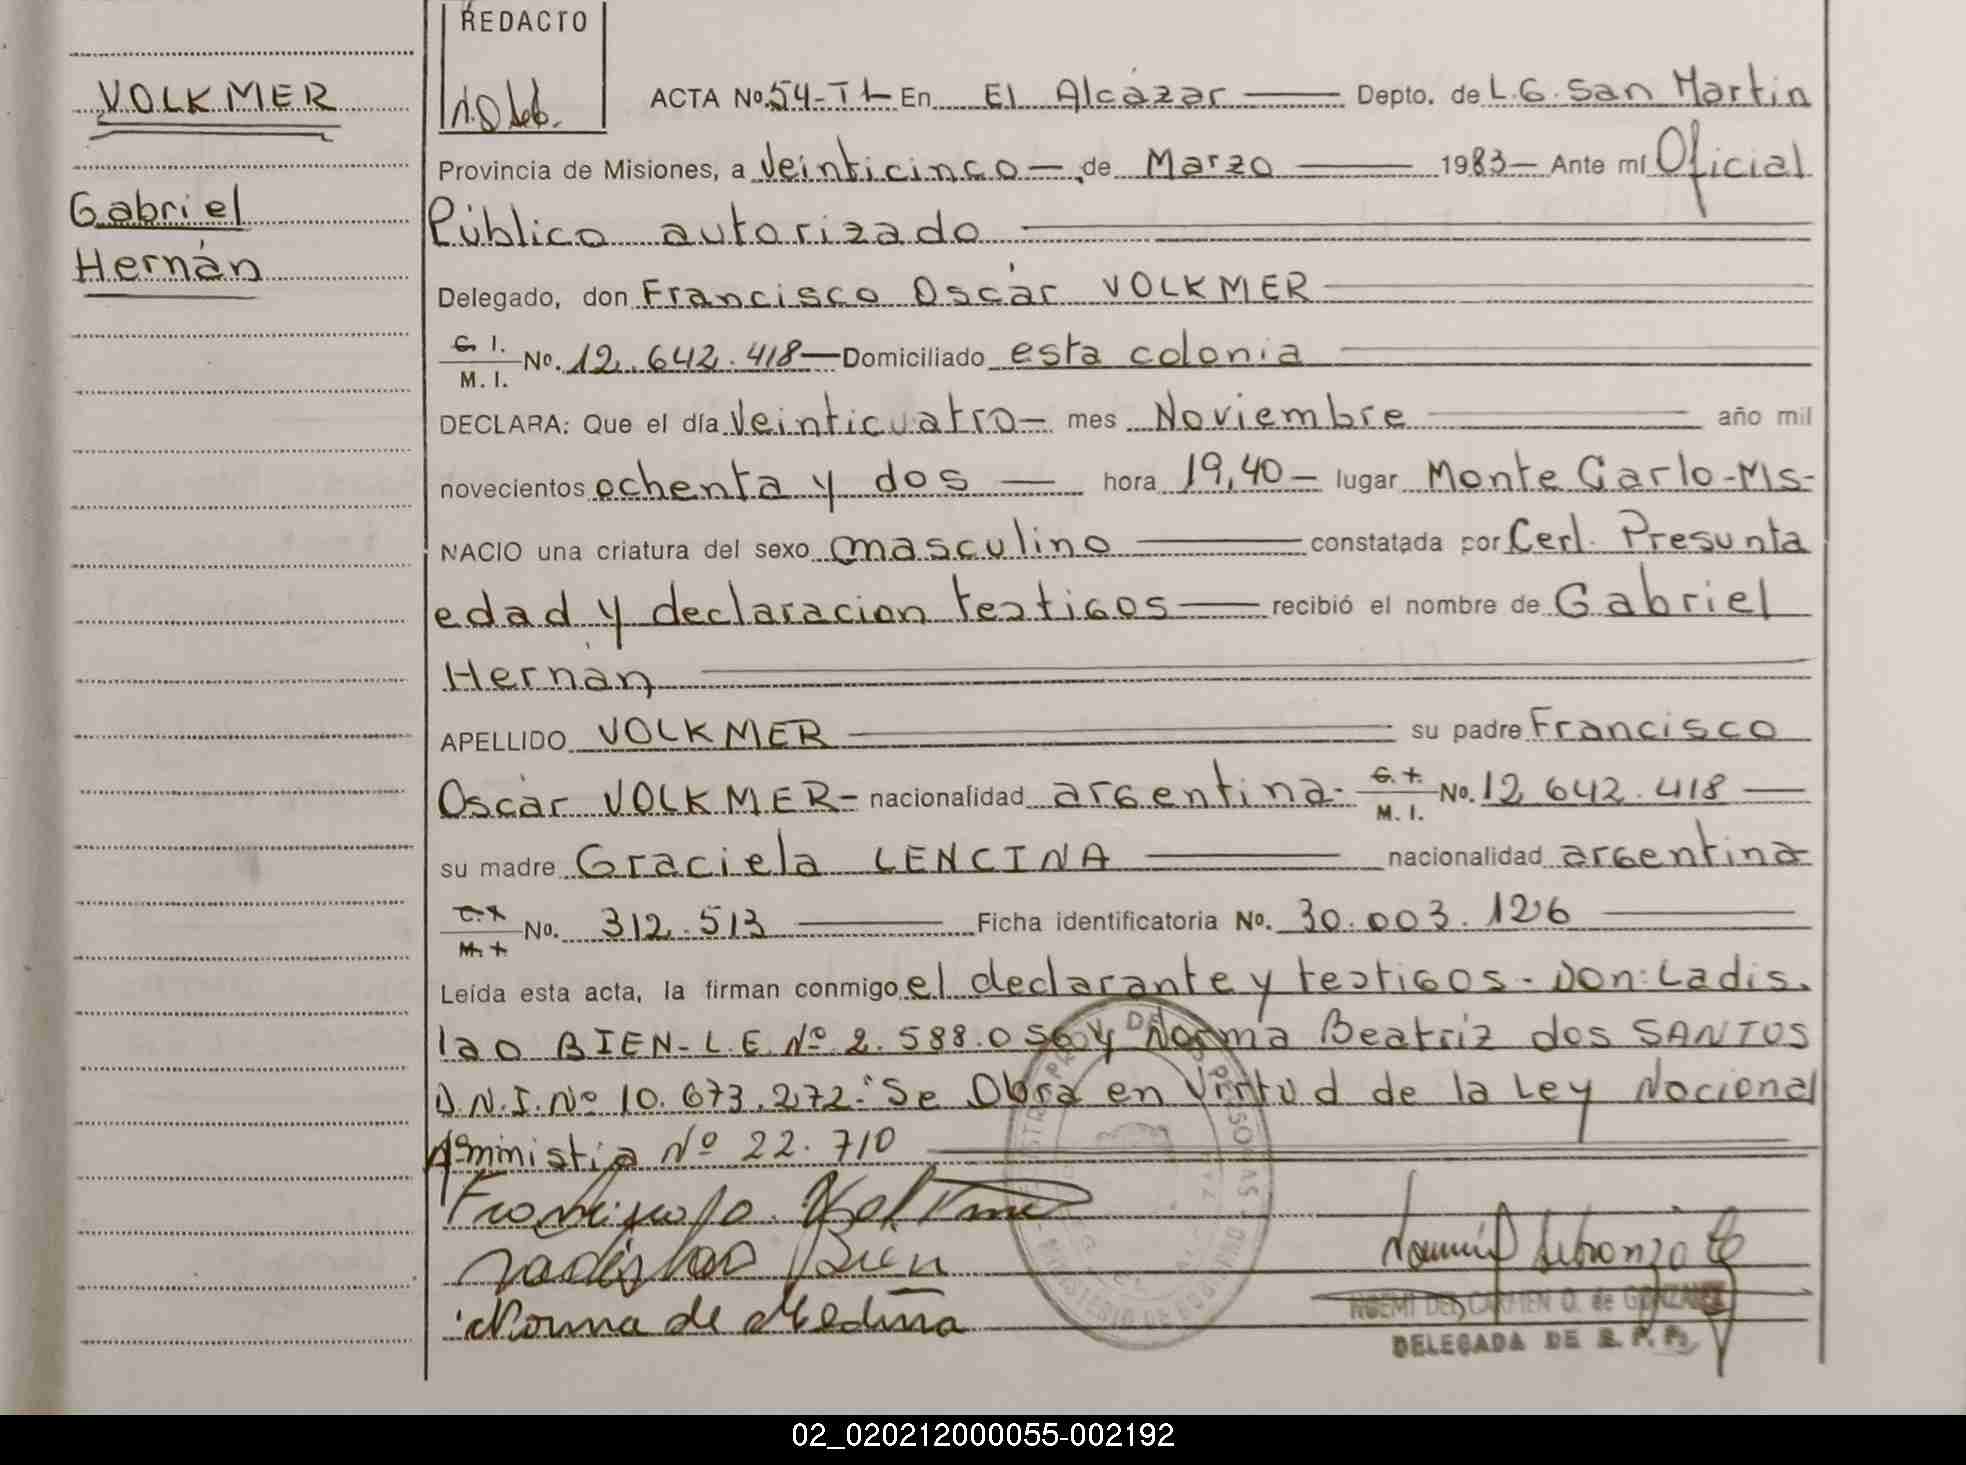 REDACTO
VOLKMER
Gabriel
Hernán
ACTA No. 54-T1- En El Alcázar Depto. de L.G. San Martin
Provincia de Misiones, a Veinticinco - de Marzo 1983 - Ante mí Oficial
Público autorizado
Delegado, don Francisco Oscar VOLKMER
C. I.
M. I.
No. 12.642.418 - Domiciliado esta colonia
DECLARA: Que el día Veinticuatro - mes Noviembre año mil
novecientos ochenta y dos - hora 19,40 - lugar Monte Carlo-Ms-
NACIO una criatura del sexo masculino constatada por Cerl. Presunta
edad y declaracion testigos recibió el nombre de Gabriel
Hernán
APELLIDO VOLKMER su padre Francisco
Oscar VOLKMER - nacionalidad argentina-
M. I.
No. 12 642.418
su madre Graciela LENCINA nacionalidad argentina
No. 312.513 Ficha identificatoria No. 30.003.126
Leída esta acta, la firman conmigo el declarante y testigos - Don: Ladis.
lao BIEN - L.E. Nº 2.588.056 y Norma Beatriz dos SANTOS
D.N.I. Nº 10.673.272. Se Obra en Virtud de la Ley Nacional
Nº 22.710
Ladislao Bien
Norma de Medina
NOEMI DEL CARMEN O. de GONZALEZ
DELEGADA DE R. P. P.
02_020212000055-002192